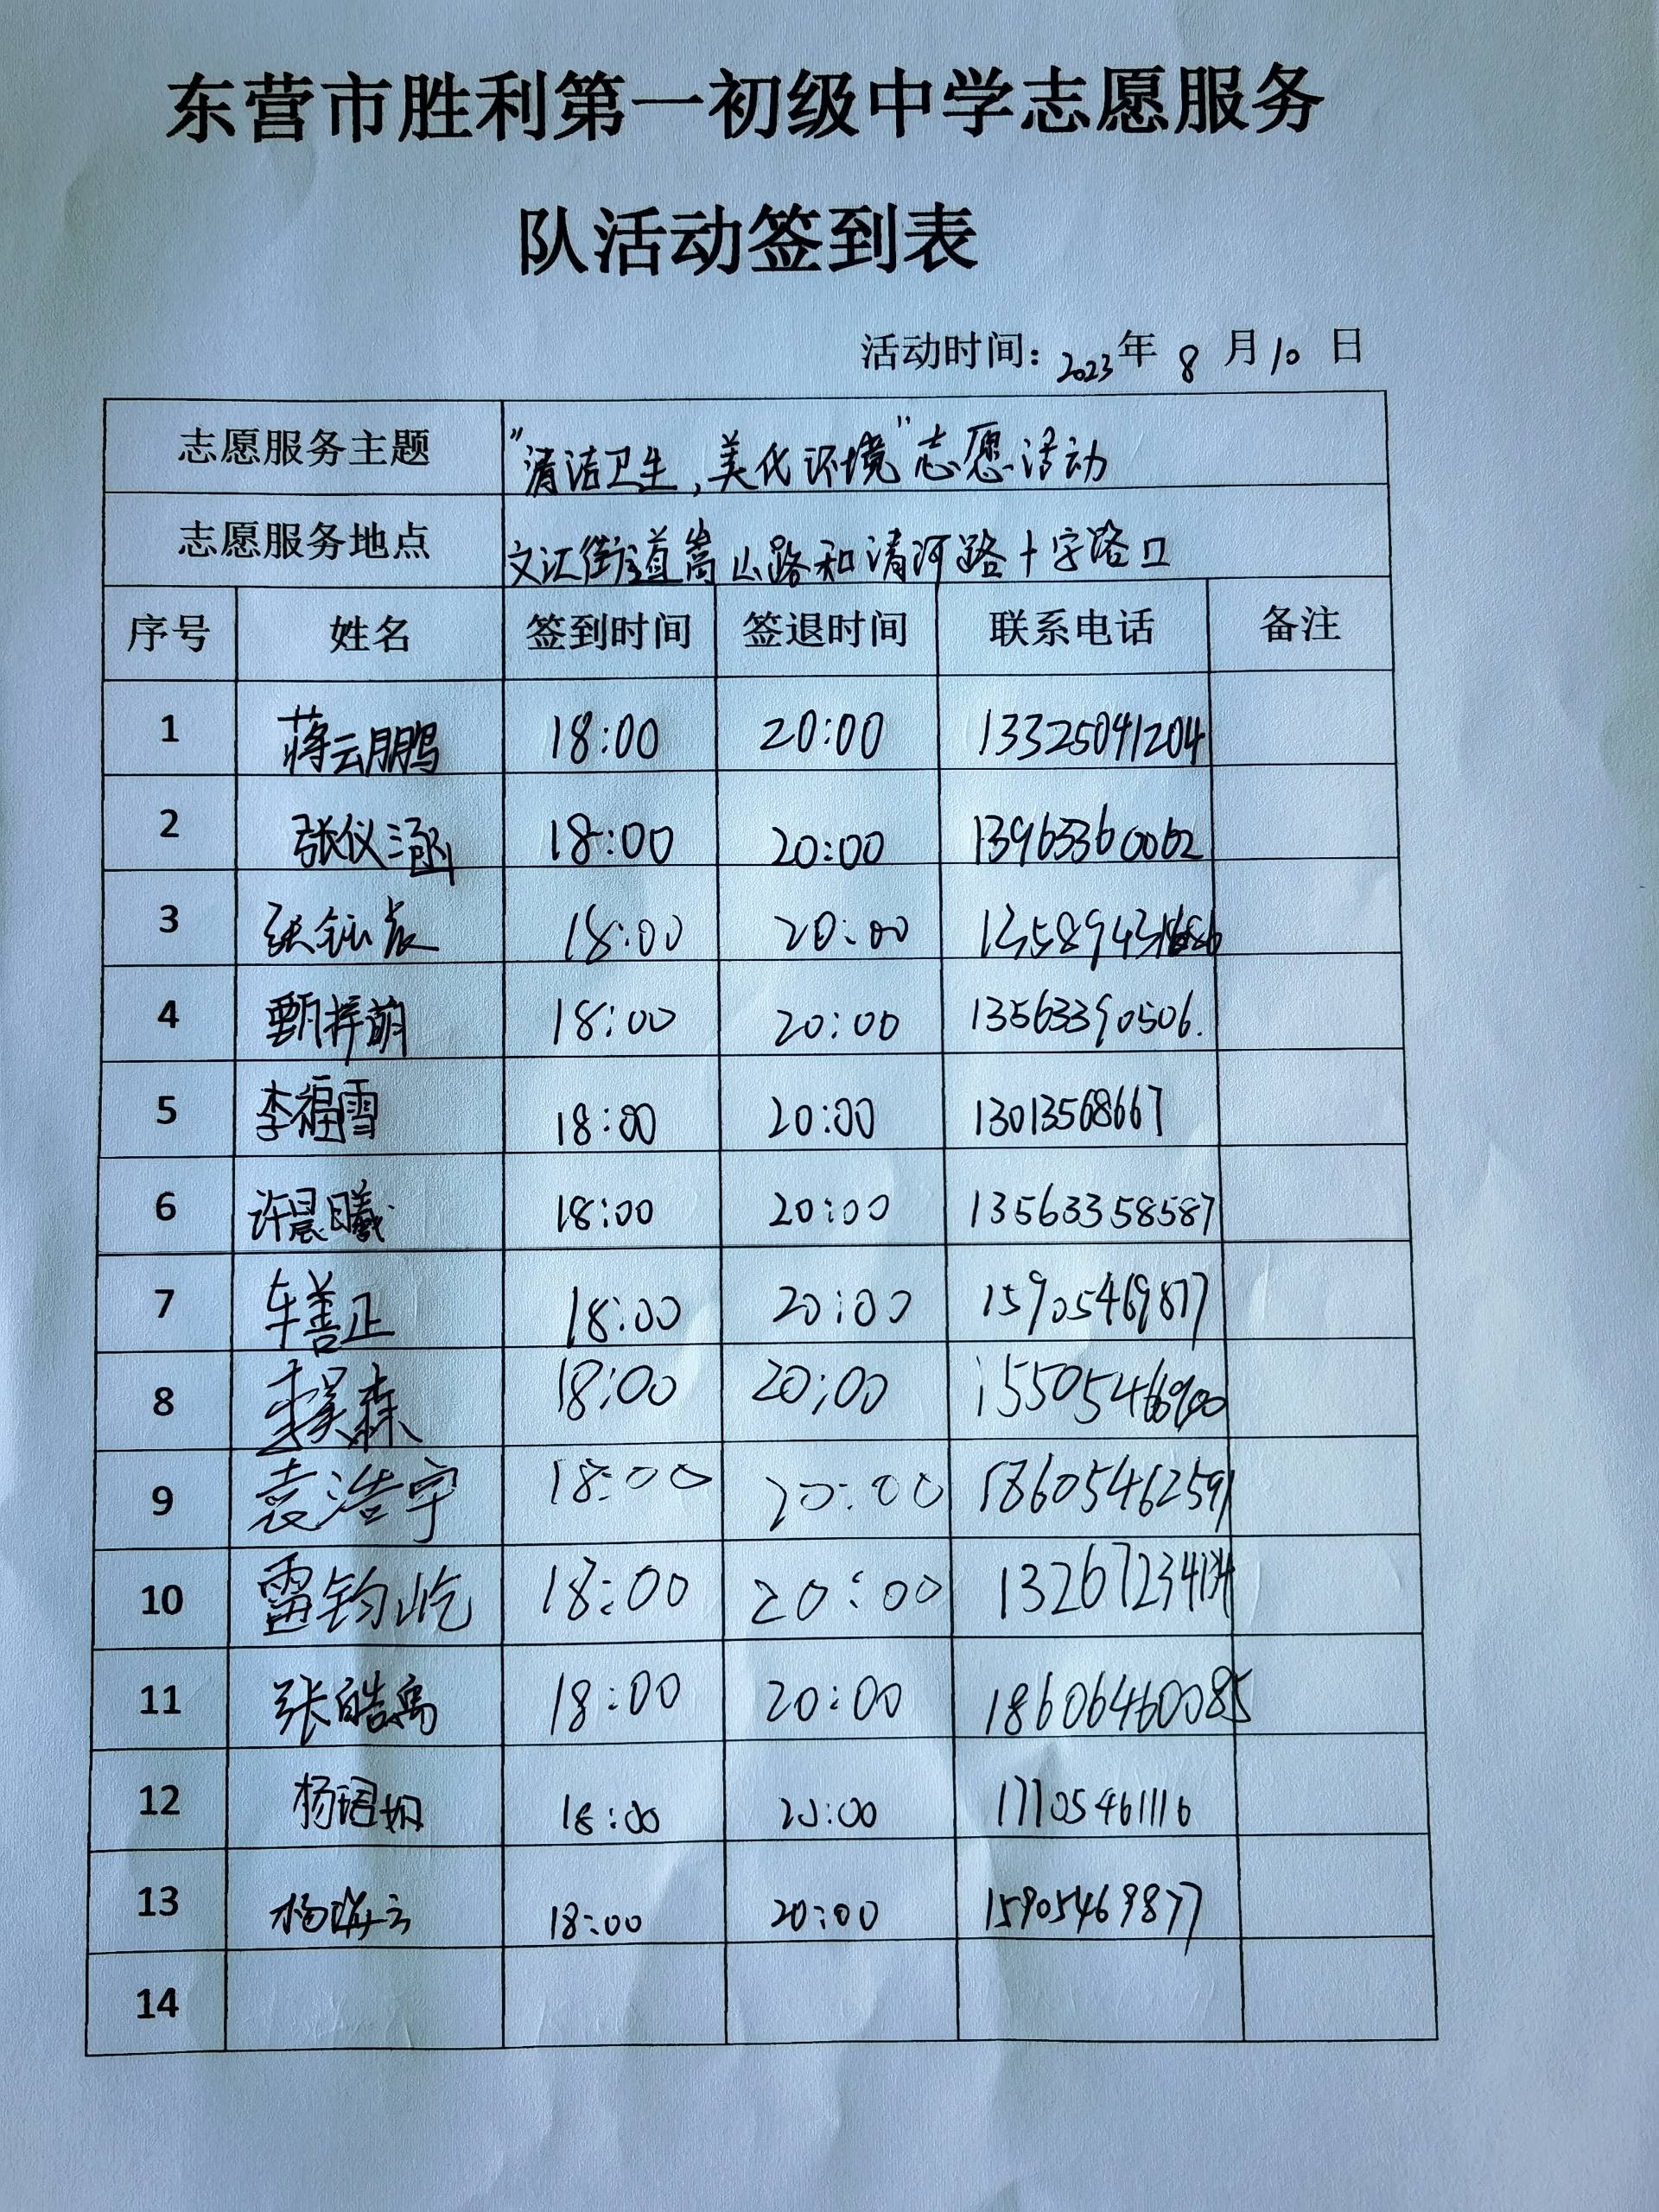 东营市胜利第一初级中学志愿服务
队活动签到表
活动时间：2023年 8 月 10 日
志愿服务主题 "清洁卫生，美化环境"志愿活动
志愿服务地点 文汇街道嵩山路和清河路十字路口
序号 姓名 签到时间 签退时间 联系电话 备注
1 蒋云鹏 18:00 20:00 13325041204
2 张仪涵 18:00 20:00 13963360062
3 张钰辰 18:00 20:00
4 甄梓萌 18:00 20:00 13563390506.
5 李福雪 18:00 20:00 13013568667
6 许晨曦 18:00 20:00 13563358587
7 车善正 18:00 20:00 15905469877
8 李昊森 18:00 20:00
9 袁浩宇 18:00 20:00 18605462591
10 雷钧屹 18:00 20:00
11 张皓禹 18:00 20:00 18606460085
12 杨珺如 18:00 20:00 17105461116
13 18:00 20:00 15905469877
14